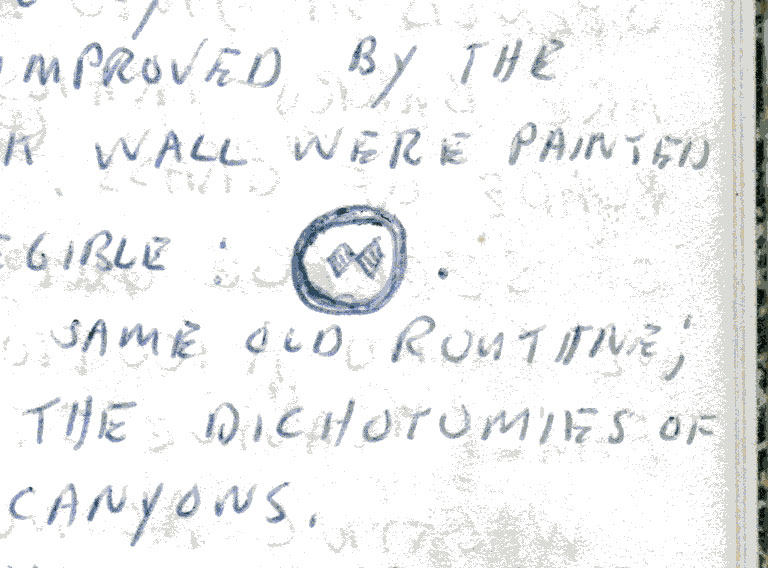 IMPROVED BY THE
WALL WERE PAINTED
EGIBLE : .
SAME OLD ROUTINE;
THE DICHOTOMIES OF
CANYONS.